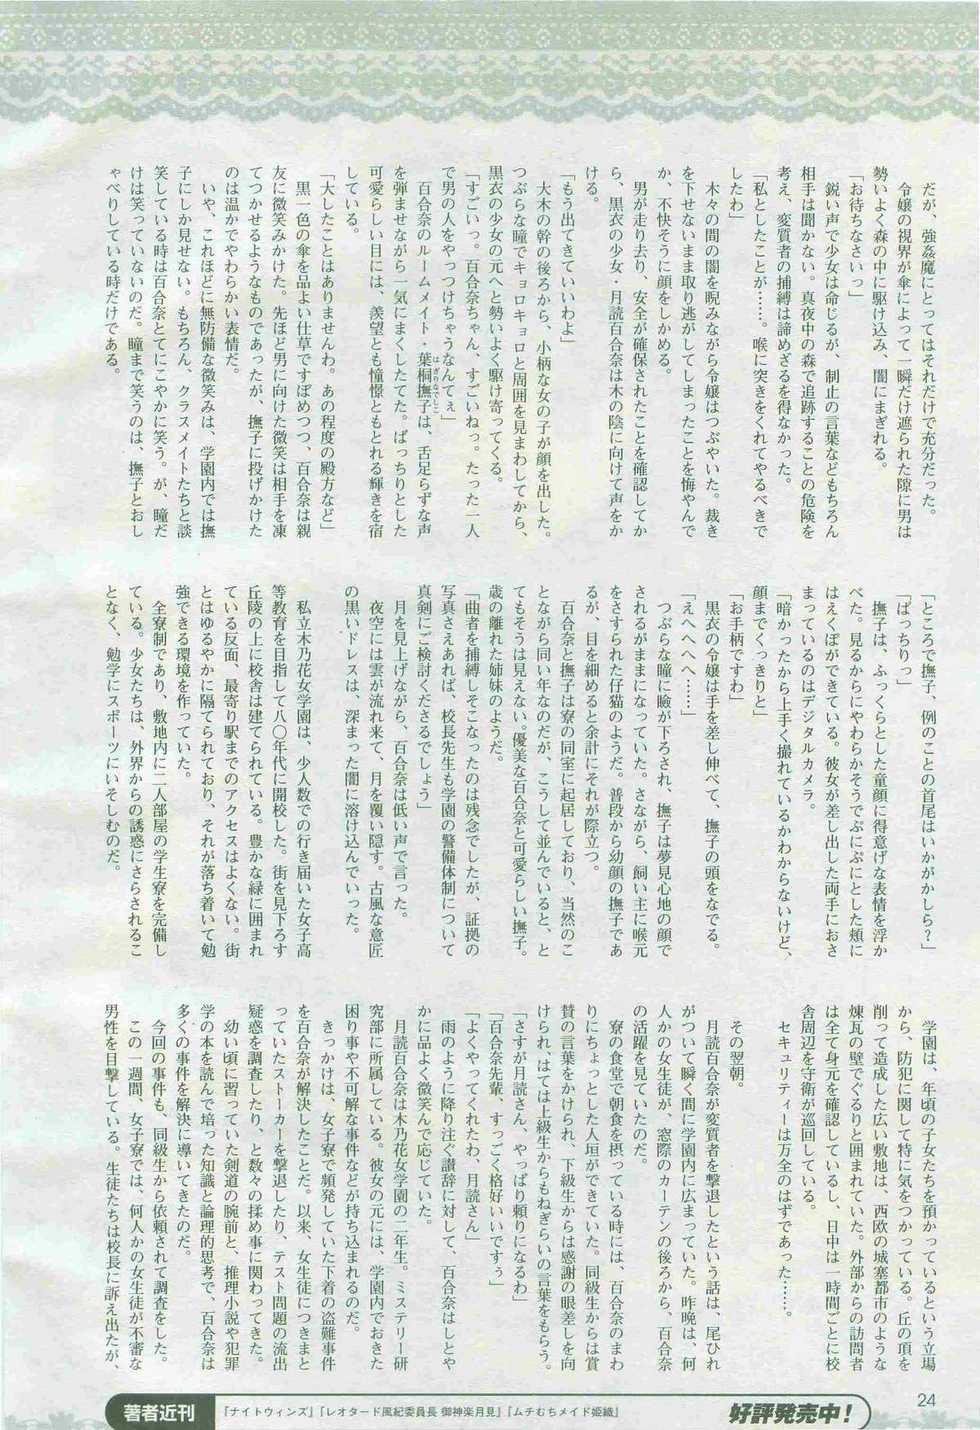 だが、強姦魔にとってはそれだけで充分だった。
令嬢の視界が傘によって一瞬だけ遮られた隙に男は
勢いよく森の中に駆け込み、闇にまぎれる。
「お待ちなさいっ」
鋭い声で少女は命じるが、制止の言葉などもちろん
相手は聞かない。真夜中の森で追跡することの危険を
考え、変質者の捕縛は諦めざるを得なかった。
「私としたことが……。喉に突きをくれてやるべきで
したわ」
木々の間の闇を睨みながら令嬢はつぶやいた。裁き
を下せないまま取り逃がしてしまったことを悔やんで
か、不快そうに顔をしかめる。
男が走り去り、安全が確保されたことを確認してか
ら、黒衣の少女・月読百合奈は木の陰に向けて声をか
ける。
「もう出てきていいわよ」
大木の幹の後ろから、小柄な女の子が顔を出した。
つぶらな瞳でキョロキョロと周囲を見まわしてから、
黒衣の少女の元へと勢いよく駆け寄ってくる。
「すごいっ。百合奈ちゃん、すごいねっ。たった一人
で男の人をやっつけちゃうなんてぇ」
百合奈のルームメイト・葉桐撫子は、舌足らずな声
はぎりなでしこ
を弾ませながら一気にまくしたてた。ぱっちりとした
可愛らしい目には、羨望とも憧憬ともとれる輝きを宿
している。
「大したことはありませんわ。あの程度の殿方など」
黒一色の傘を品よい仕草ですぼめつつ、百合奈は親
友に微笑みかけた。先ほど男に向けた微笑は相手を凍
てつかせるようなものであったが、撫子に投げかけた
のは温かでやわらかい表情だ。
いや、これほどに無防備な微笑みは、学園内では撫
子にしか見せない。もちろん、クラスメイトたちと談
笑している時は百合奈とてにこやかに笑う。が、瞳だ
けは笑っていないのだ。瞳まで笑うのは、撫子とおし
ゃべりしている時だけである。
「ところで撫子、例のことの首尾はいかがかしら？」
「ばっちりっ」
撫子は、ふっくらとした童顔に得意げな表情を浮か
べた。見るからにやわらかそうでぷにぷにとした頬に
はえくぼができている。彼女が差し出した両手におさ
まっているのはデジタルカメラ。
「暗かったから上手く撮れているかわからないけど、
顔までくっきりと」
「お手柄ですわ」
黒衣の令嬢は手を差し伸べて、撫子の頭をなでる。
「えへへへへ……」
つぶらな瞳に瞼が下ろされ、撫子は夢見心地の顔で
されるがままになっていた。さながら、飼い主に喉元
をさすられた仔猫のようだ。普段から幼顔の撫子であ
るが、目を細めると余計にそれが際立つ。
百合奈と撫子は寮の同室に起居しており、当然のこ
とながら同い年なのだが、こうして並んでいると、と
てもそうは見えない。優美な百合奈と可愛らしい撫子。
歳の離れた姉妹のようだ。
「曲者を捕縛しそこなったのは残念でしたが、証拠の
写真さえあれば、校長先生も学園の警備体制について
真剣にご検討くださるでしょう」
月を見上げながら、百合奈は低い声で言った。
夜空には雲が流れ来て、月を覆い隠す。古風な意匠
の黒いドレスは、深まった闇に溶け込んでいった。
私立木乃花女学園は、少人数での行き届いた女子高
等教育を目指して八〇年代に開校した。街を見下ろす
丘陵の上に校舎は建てられている。豊かな緑に囲まれ
ている反面、最寄り駅までのアクセスはよくない。街
とはゆるやかに隔てられており、それが落ち着いて勉
強できる環境を作っていた。
全寮制であり、敷地内に二人部屋の学生寮を完備し
ている。少女たちは、外界からの誘惑にさらされるこ
となく、勉学にスポーツにいそしむのだ。
学園は、年頃の子女たちを預かっているという立場
から、防犯に関して特に気をつかっている。丘の頂を
削って造成した広い敷地は、西欧の城塞都市のような
煉瓦の壁でぐるりと囲まれていた。外部からの訪問者
は全て身元を確認しているし、日中は一時間ごとに校
舎周辺を守衛が巡回している。
セキュリティーは万全のはずであった……。
その翌朝。
月読百合奈が変質者を撃退したという話は、尾ひれ
がついて瞬く間に学園内に広まっていた。昨晩は、何
人かの女生徒が、窓際のカーテンの後ろから、百合奈
の活躍を見ていたのだ。
寮の食堂で朝食を摂っている時には、百合奈のまわ
りにちょっとした人垣ができていた。同級生からは賞
賛の言葉をかけられ、下級生からは感謝の眼差しを向
けられ、はては上級生からもねぎらいの言葉をもらう。
「さすが月読さん、やっぱり頼りになるわ」
「百合奈先輩、すっごく格好いいですぅ」
「よくやってくれたわ、月読さん」
雨のように降り注ぐ讃辞に対して、百合奈はしとや
かに品よく微笑んで応じていた。
月読百合奈は木乃花女学園の二年生。ミステリー研
究部に所属している。彼女の元には、学園内でおきた
困り事や不可解な事件などが持ち込まれるのだ。
きっかけは、女子寮で頻発していた下着の盗難事件
を百合奈が解決したことだ。以来、女生徒につきまと
っていたストーカーを撃退したり、テスト問題の流出
疑惑を調査したり、と数々の揉め事に関わってきた。
幼い頃に習っていた剣道の腕前と、推理小説や犯罪
学の本を読んで培った知識と論理的思考で、百合奈は
多くの事件を解決に導いてきたのだ。
今回の事件も、同級生から依頼されて調査をした。
この一週間、女子寮では、何人かの女生徒が不審な
男性を目撃している。生徒たちは校長に訴え出たが、
24
著者近刊
『ナイトウィンズ』『レオタード風紀委員長 御神楽月見』『ムチむちメイド姫織』
好評発売中！